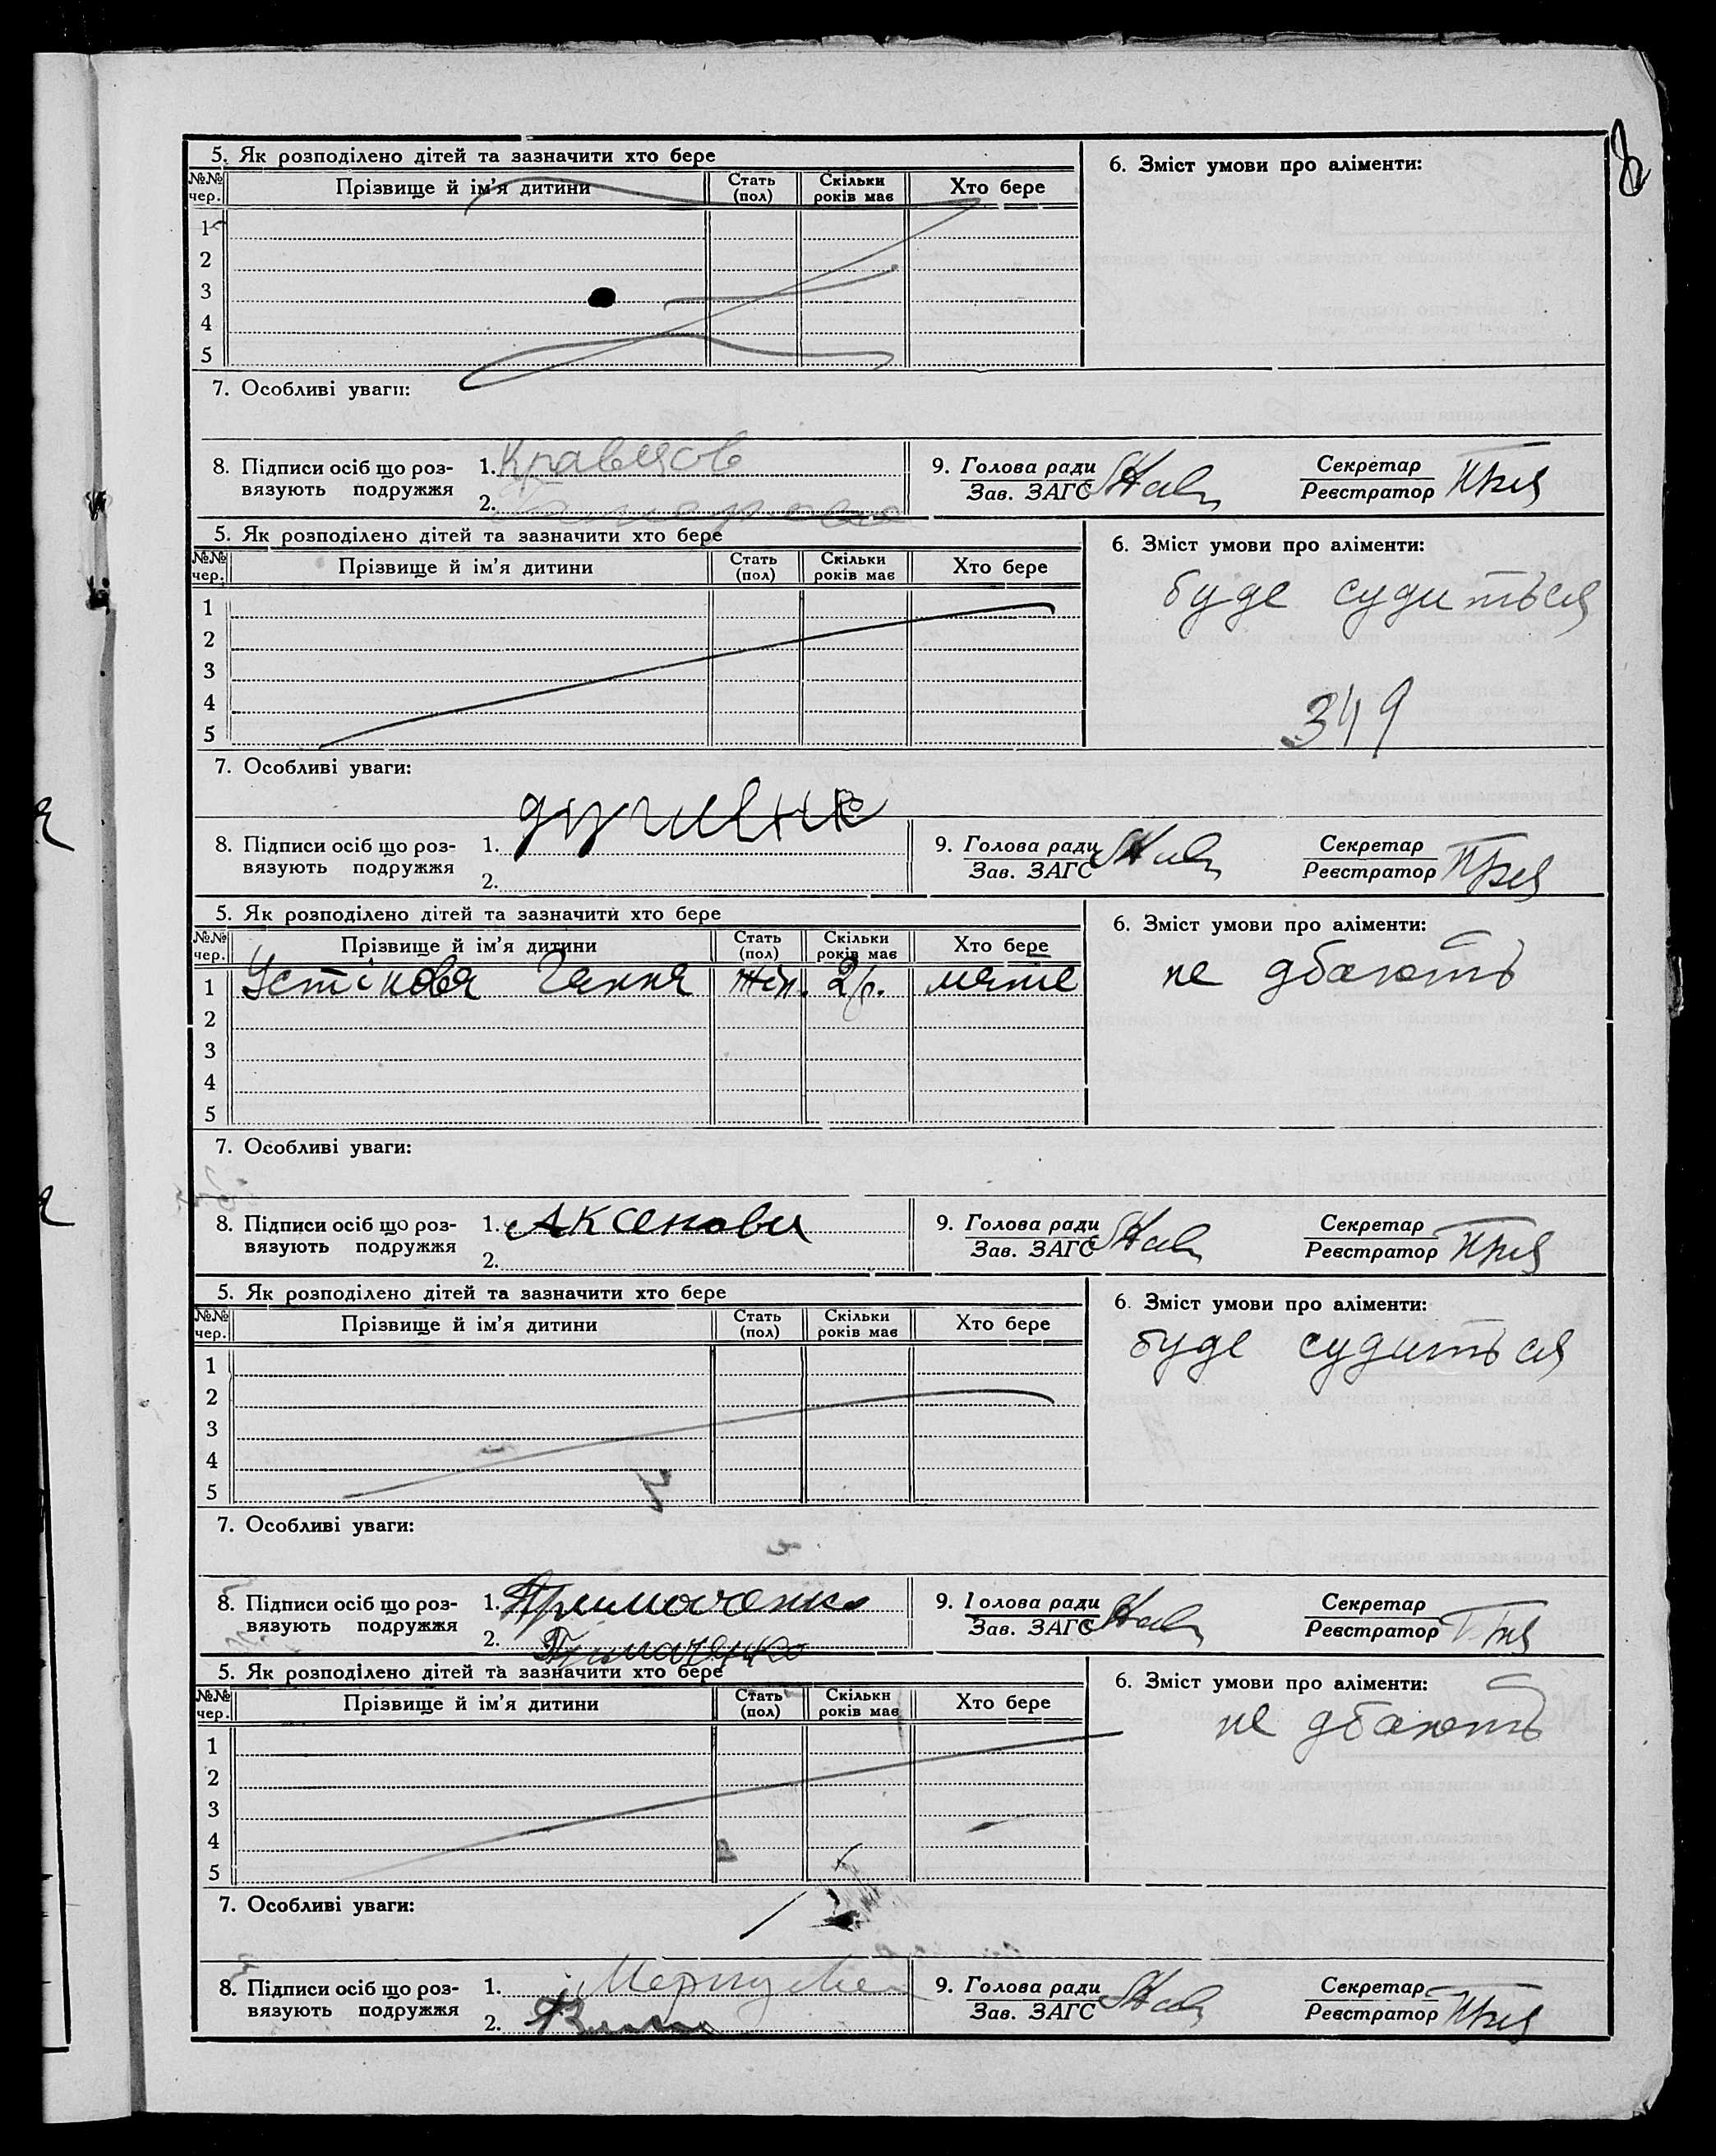 8
5. Як розподілено дітей та зазначити хто бере
6. Зміст умови про аліменти:
№№ чер. Прізвище й ім'я дитини Стать (пол) Скільки років має Хто бере
1
2
3
4
5
7. Особливі уваги:
8. Підписи осіб що роз-
вязують подружжя
1. Кравцов
2.
9. Голова ради
Зав. ЗАГС
Секретар
Реєстратор
5. Як розподілено дітей та зазначити хто бере
6. Зміст умови про аліменти:
№№ чер. Прізвище й ім'я дитини Стать (пол) Скільки років має Хто бере
буде судиться
1
2
3
4
349
5
7. Особливі уваги:
8. Підписи осіб що роз-
вязують подружжя
1.
2.
9. Голова ради
Зав. ЗАГС
Секретар
Реєстратор
5. Як розподілено дітей та зазначити хто бере
6. Зміст умови про аліменти:
№№ чер. Прізвище й ім'я дитини Стать (пол) Скільки років має Хто бере
не дбають
1 Устінова Ганна жін. 2 р. мате
2
3
4
5
7. Особливі уваги:
8. Підписи осіб що роз-
вязують подружжя
1. Аксенова
2.
9. Голова ради
Зав. ЗАГС
Секретар
Реєстратор
5. Як розподілено дітей та зазначити хто бере
6. Зміст умови про аліменти:
№№ чер. Прізвище й ім'я дитини Стать (пол) Скільки років має Хто бере
буде судиться
1
2
3
4
5
7. Особливі уваги:
8. Підписи осіб що роз-
вязують подружжя
1. Примаченко
2. Примаченко
9. Голова ради
Зав. ЗАГС
Секретар
Реєстратор
5. Як розподілено дітей та зазначити хто бере
6. Зміст умови про аліменти:
№№ чер. Прізвище й ім'я дитини Стать (пол) Скільки років має Хто бере
не дбають
1
2
3
4
5
7. Особливі уваги:
8. Підписи осіб що роз-
вязують подружжя
1.
2.
9. Голова ради
Зав. ЗАГС
Секретар
Реєстратор